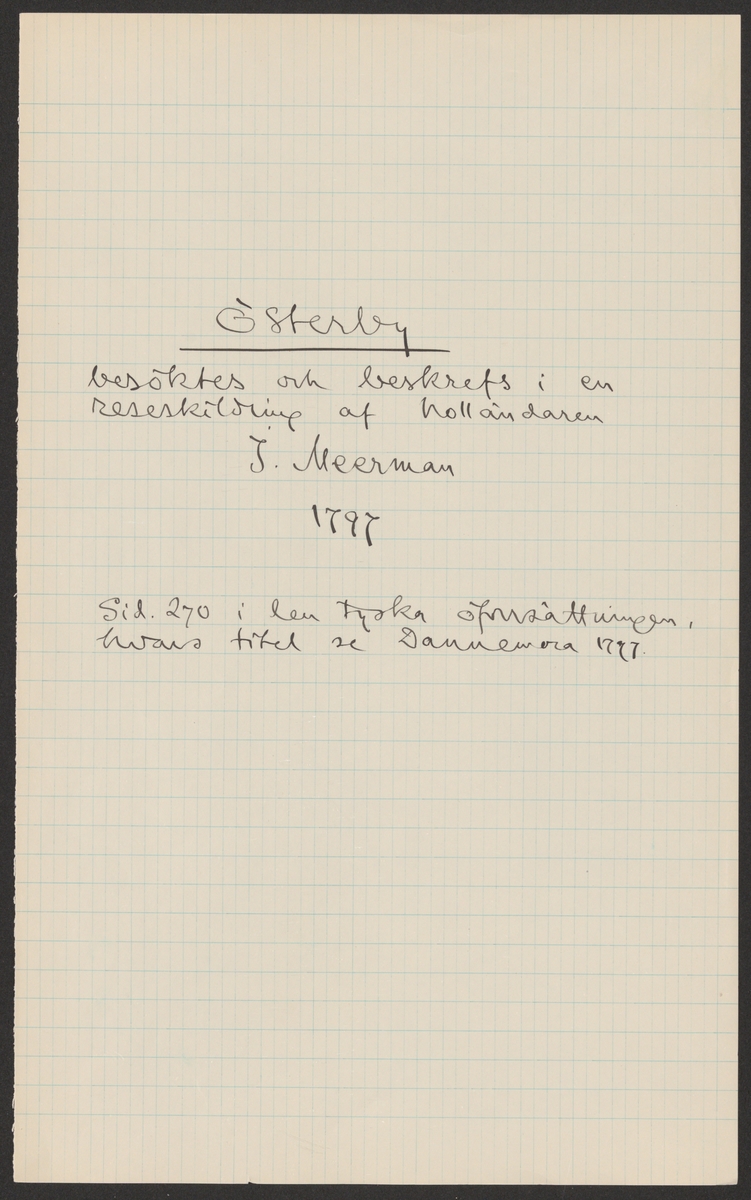 Österby
besöktes och beskrefs i en
reseskildring af holländaren
J. Meerman
1797
Sid. 270 i den tyska öfversättningen,
hvars titel se Dannemora 1797.